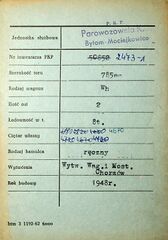 P. K. P.
Jednostka służbowa Parowozownia
Bytom-Maciejkowice
Nr inwentarza PKP 50850 2473-1
Szerokość toru 785mm
Rodzaj wagonu Wb
Ilość osi 2
Ładowność w t. 8t.
Ciężar własny 4670
Rodzaj hamulca ręczny
Wytwórnia Wytw. Wag. i Most.
Chorzów
Rok budowy 1948r.